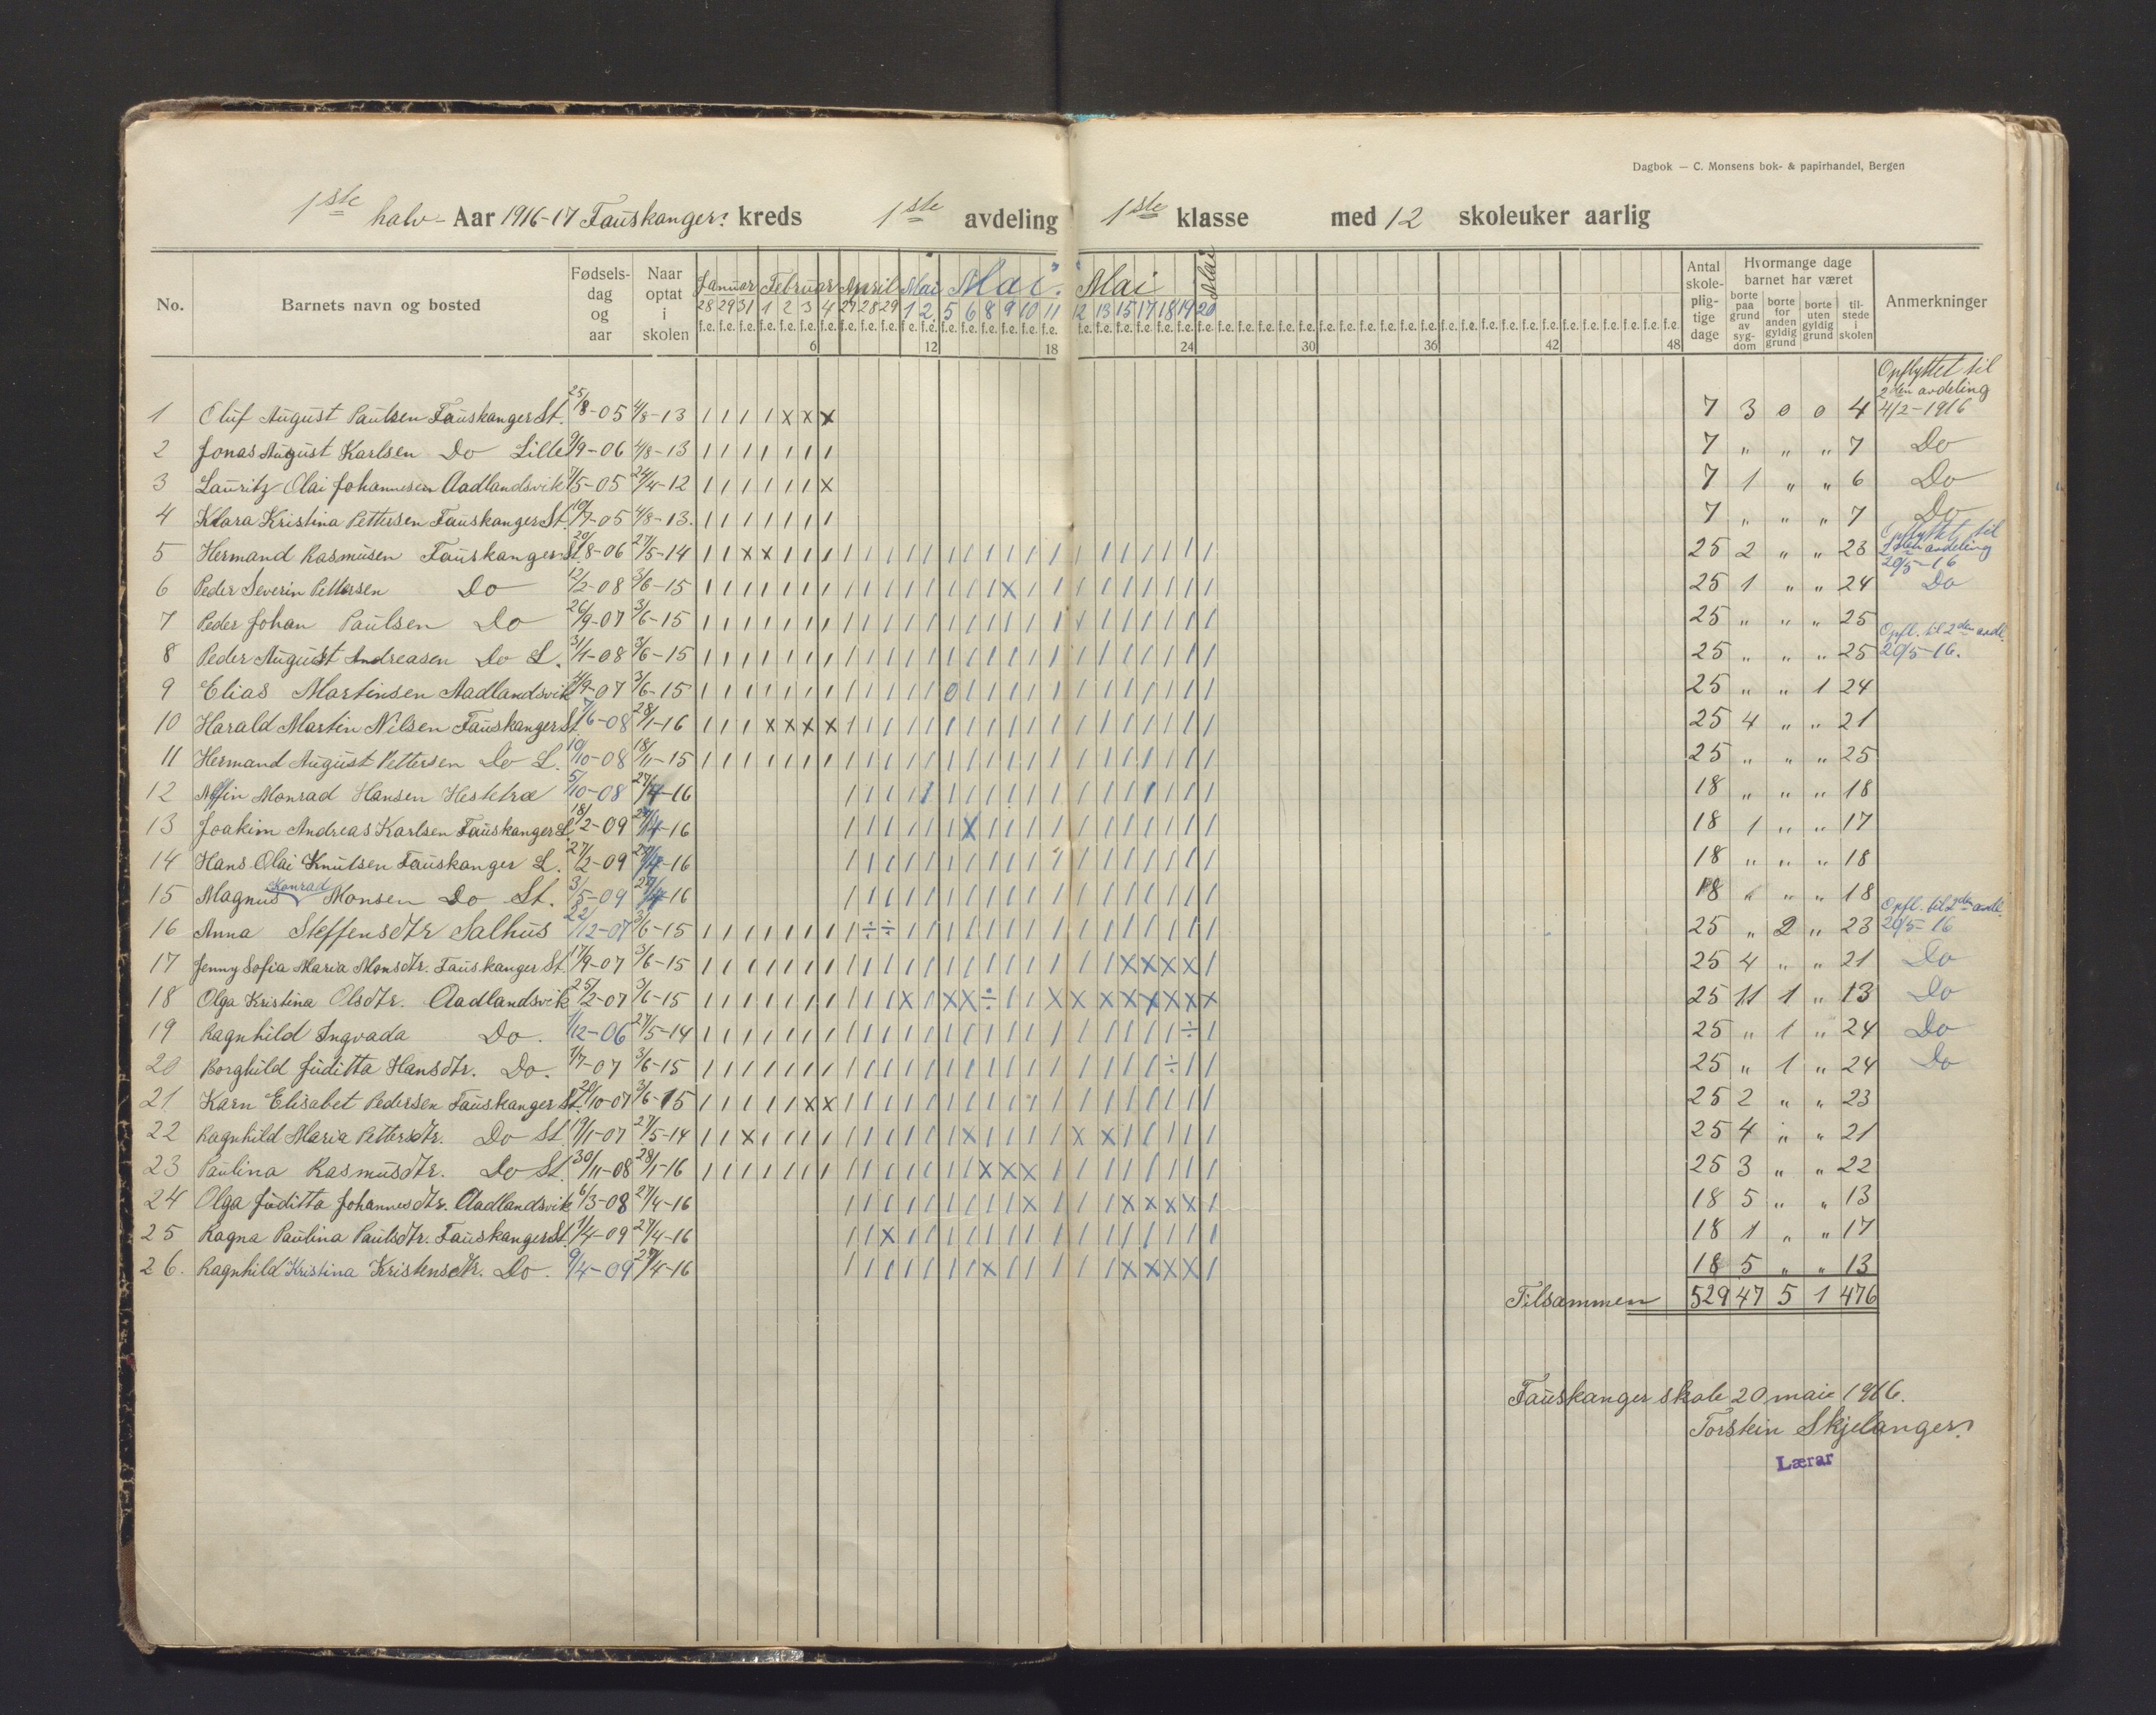 Dagbok — C. Monsens bok- & papirhandel, Bergen
1ste halv- Aar 1916-17 Fauskanger: kreds 1ste avdeling 1ste klasse med 12 skoleuker aarlig
No. Barnets navn og bosted Fødselsdag og aar Naar optat i skolen Januar Februar April Mai Mai Mai Mai Antal skolepligtige dage Hvormange dage barnet har været Anmerkninger
borte paa grund av sygdom borte for anden gyldig grund borte uten gyldig grund tilstede i skolen
28 29 31 1 2 3 4 27 28 29 1 2 5 6 8 9 10 11 12 13 15 17 18 19 20
f.e. f.e. f.e. f.e. f.e. f.e. f.e. f.e. f.e. f.e. f.e. f.e. f.e. f.e. f.e. f.e. f.e. f.e. f.e. f.e. f.e. f.e. f.e. f.e. f.e. f.e. f.e. f.e. f.e. f.e. f.e. f.e. f.e. f.e. f.e. f.e. f.e. f.e. f.e. f.e. f.e. f.e. f.e. f.e. f.e. f.e. f.e. f.e.
6 12 18 24 30 36 42 48
1 Oluf August Paulsen Fauskanger St. 25/8-05 4/8-13 / / / / x x x 7 3 0 0 4 Opflyttet til 2den avdeling 4/2-1916
2 Jonas August Karlsen Do Lille 9/9-06 4/8-13 / / / / / / / 7 " " " 7 Do
3 Lauritz Olai Johannesen Aadlandsvik 7/5-05 24/4-12 / / / / / / x 7 1 " " 6 Do
4 Klara Kristina Pettersen Fauskanger St. 10/7-05 4/8-13. / / / / / / / 7 " " " 7 Do
5 Hermand Rasmusen Fauskanger St. 20/8-06 27/5-14 / / x x / / / / / / / / / / / / / / / / / / / / / 25 2 " " 23 Opflyttet til 2den avdeling 20/5-16
6 Peder Severin Pettersen Do 12/2-08 3/6-15 / / / / / / / / / / / / / / / x / / / / / / / / / 25 1 " " 24 Do
7 Peder Johan Paulsen Do 26/9-07 3/6-15 / / / / / / / / / / / / / / / / / / / / / / / / / 25 " " " 25
8 Peder August Andreasen Do L. 3/4-08 3/6-15 / / / / / / / / / / / / / / / / / / / / / / / / / 25 " " " 25 Opfl. til 2den avdl. 20/5-16.
9 Elias Martinsen Aadlandsvik 4/9-07 3/6-15 / / / / / / / / / / / / 0 / / / / / / / / / / / / 25 " " 1 24
10 Harald Martin Nilsen Fauskanger St. 7/6-08 28/1-16 / / / x x x x / / / / / / / / / / / / / / / / / / 25 4 " " 21
11 Hermand August Pettersen Do L. 10/10-08 18/1-15 / / / / / / / / / / / / / / / / / / / / / / / / / 25 " " " 25
12 Monrad Hansen Hestetræ 5/10-08 27/4-16 / / / / / / / / / / / / / / / / / / 18 " " " 18
13 Joakim Andreas Karlsen Fauskanger L. 18/2-09 27/4-16 / / / / / / x / / / / / / / / / / / 18 1 " " 17
14 Hans Olai Knutsen Fauskanger L. 27/2-09 27/4-16 / / / / / / / / / / / / / / / / / / 18 " " " 18
15 Magnus Konrad Monsen Do St. 3/5-09 27/4-16 / / / / / / / / / / / / / / / / / / 18 " " " 18
16 Anna Steffensdtr Salhus 22/12-07 3/6-15 / / / / / / / / ÷ ÷ / / / / / / / / / / / / / / / 25 " 2 " 23 Opfl. til 2den avdl. 20/5-16
17 Jenny Sofia Maria Monsdtr. Fauskanger St. 17/9-07 3/6-15 / / / / / / / / / / / / / / / / / / / / x x x x / 25 4 " " 21 Do
18 Olga Kristina Olsdtr. Aadlandsvik 25/2-07 3/6-15 / / / / / / / / / / x / x x ÷ / / x x x x x x x x 25 11 1 " 13 Do
19 Ragnhild Ingvada Do. 1/12-06 27/5-14 / / / / / / / / / / / / / / / / / / / / / / / ÷ / 25 " 1 " 24 Do
20 Borghild Juditta Hansdtr. Do. 1/7-07 3/6-15 / / / / / / / / / / / / / / / / / / / / / / ÷ / / 25 " 1 " 24 Do
21 Karn Elisabet Pedersen Fauskanger St. 20/10-07 3/6-15 / / / / / x x / / / / / / / / / / / / / / / / / / 25 2 " " 23
22 Ragnhild Maria Pettersdtr. Do St. 19/1-07 27/5-14 / / x / / / / / / / / / / x / / / / x x / / / / / 25 4 " " 21
23 Paulina Rasmusdtr. Do St. 30/11-08 28/1-16 / / / / / / / / / / / / / / x x x / / / / / / / / 25 3 " " 22
24 Olga Juditta Johannesdtr. Aadlandsvik 6/3-08 27/4-16 / / / / / / / / / x / / / x x x x / 18 5 " " 13
25 Ragna Paulina Paulsdtr. Fauskanger St. 1/4-09 27/4-16 / / x / / / / / / / / / / / / / / / 18 1 " " 17
26. Ragnhild Kristina Kristensdtr. Do. 9/4-09 27/4-16 / / / / / / / x / / / / / x x x x / 18 5 " " 13
Tilsammen 529 47 5 1 476
Fauskanger skole 20 maie 1916.
Torstein Skjelanger:
Lærar